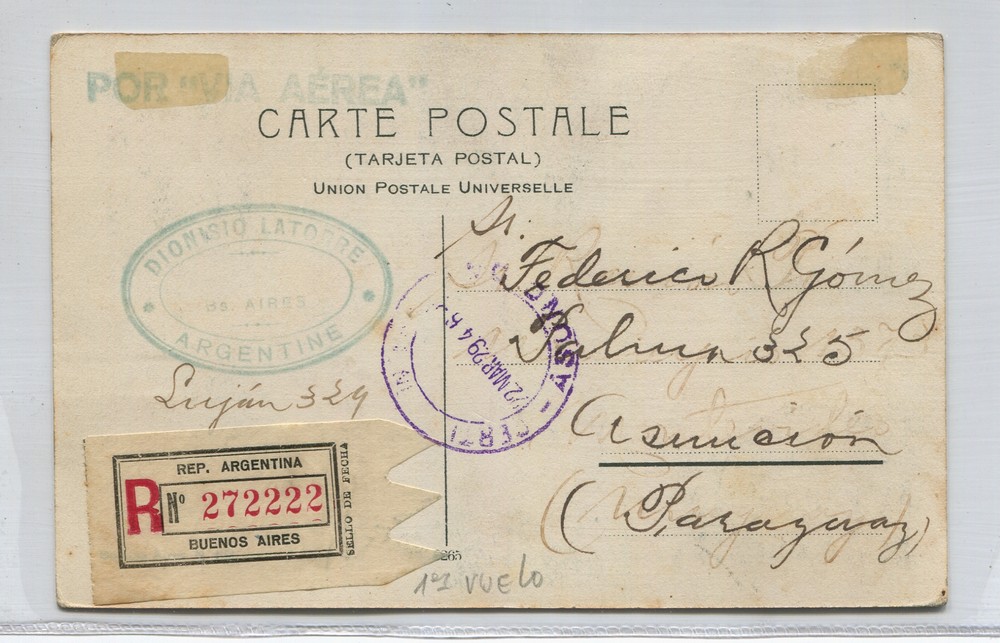 POR "VIA AÉREA"
CARTE POSTALE
(TARJETA POSTAL)
UNION POSTALE UNIVERSELLE
DIONISIO LATORRE
Bs. AIRES
ARGENTINE
Luján 329
Sr.
Federico R Gómez
Palma 325
Asunción
(Paraguay)
ASUNCION
2 MAR 29 4
CERTI
REP. ARGENTINA
R Nº 272222
BUENOS AIRES
SELLO DE FECHA
265
1er VUELO